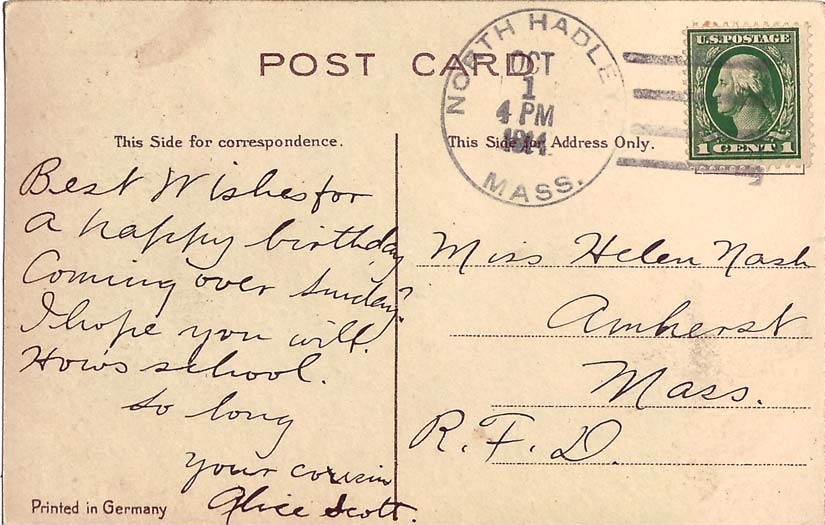 POST CARD
NORTH HADLEY
OCT
1
4 PM
1914
MASS.
U.S. POSTAGE
1 CENT 1
This Side for correspondence.
This Side for Address Only.
Best Wishes for
a happy birthday
Coming over Sunday?
I hope you will.
Hows school.
So long
your cousin
Alice Scott.
Miss Helen Nash
Amherst
Mass.
R.F.D.
Printed in Germany